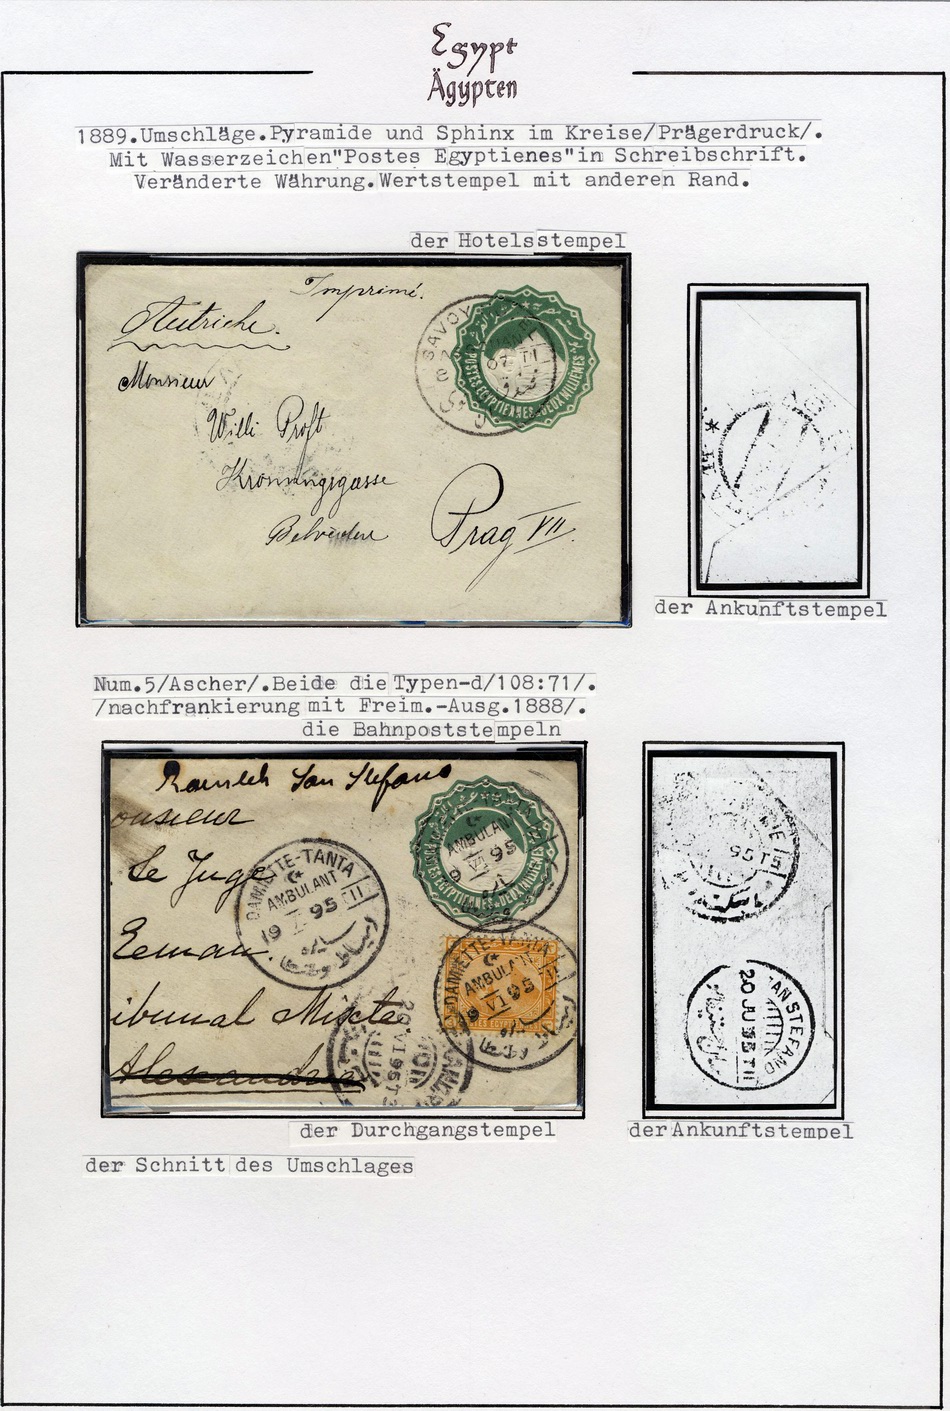 Egypt
Ägypten
1889.Umschläge.Pyramide und Sphinx im Kreise/Prägerdruck/.
Mit Wasserzeichen"Postes Egyptienes"in Schreibschrift.
Veränderte Währung.Wertstempel mit anderen Rand.
der Hotelsstempel
Imprimé.
Autriche.
SAVOY
POSTES EGYPTIENNES DEUX MILLIEMES
Monsieur
Willi Proft
Kronungsgasse
Belvedere
Prag VII.
der Ankunftstempel
Num.5/Ascher/.Beide die Typen-d/108:71/.
/nachfrankierung mit Freim.-Ausg.1888/.
die Bahnpoststempeln
Ramleh San Stefano
onsieur
Le Juge
Eeman.
ibunal Mixte
Alexandrie
DAMIETTE-TANTA
AMBULANT
19 95 II
AMBULANT
9 VI 95
DAMIETTE-TANTA
AMBULANT
9 VI 95
95 T5
SAN STEFANO
20 JU 95 TII
der Durchgangstempel
der Ankunftstempel
der Schnitt des Umschlages